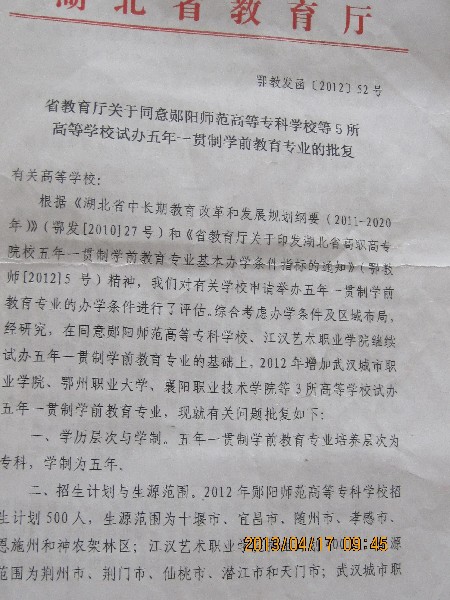 湖北省教育厅
鄂教发函〔2012〕52号
省教育厅关于同意郧阳师范高等专科学校等5所
高等学校试办五年一贯制学前教育专业的批复
有关高等学校：
根据《湖北省中长期教育改革和发展规划纲要（2011-2020
年）》（鄂发[2010]27号）和《省教育厅关于印发湖北省高职高专
院校五年一贯制学前教育专业基本办学条件指标的通知》（鄂教
师[2012]5 号）精神，我们对有关学校申请举办五年一贯制学前
教育专业的办学条件进行了评估。综合考虑办学条件及区域布局，
经研究，在同意郧阳师范高等专科学校、江汉艺术职业学院继续
试办五年一贯制学前教育专业的基础上，2012年增加武汉城市职
业学院、鄂州职业大学、襄阳职业技术学院等3所高等学校试办
五年一贯制学前教育专业，现就有关问题批复如下：
一、学历层次与学制。五年一贯制学前教育专业培养层次为
专科，学制为五年。
二、招生计划与生源范围。2012年郧阳师范高等专科学校招
生计划500人，生源范围为十堰市、宜昌市、随州市、孝感市、
恩施州和神农架林区；江汉艺术职业学
源
范围为荆州市、荆门市、仙桃市、潜江市和天门市；武汉城市职
2013/04/17 09:45